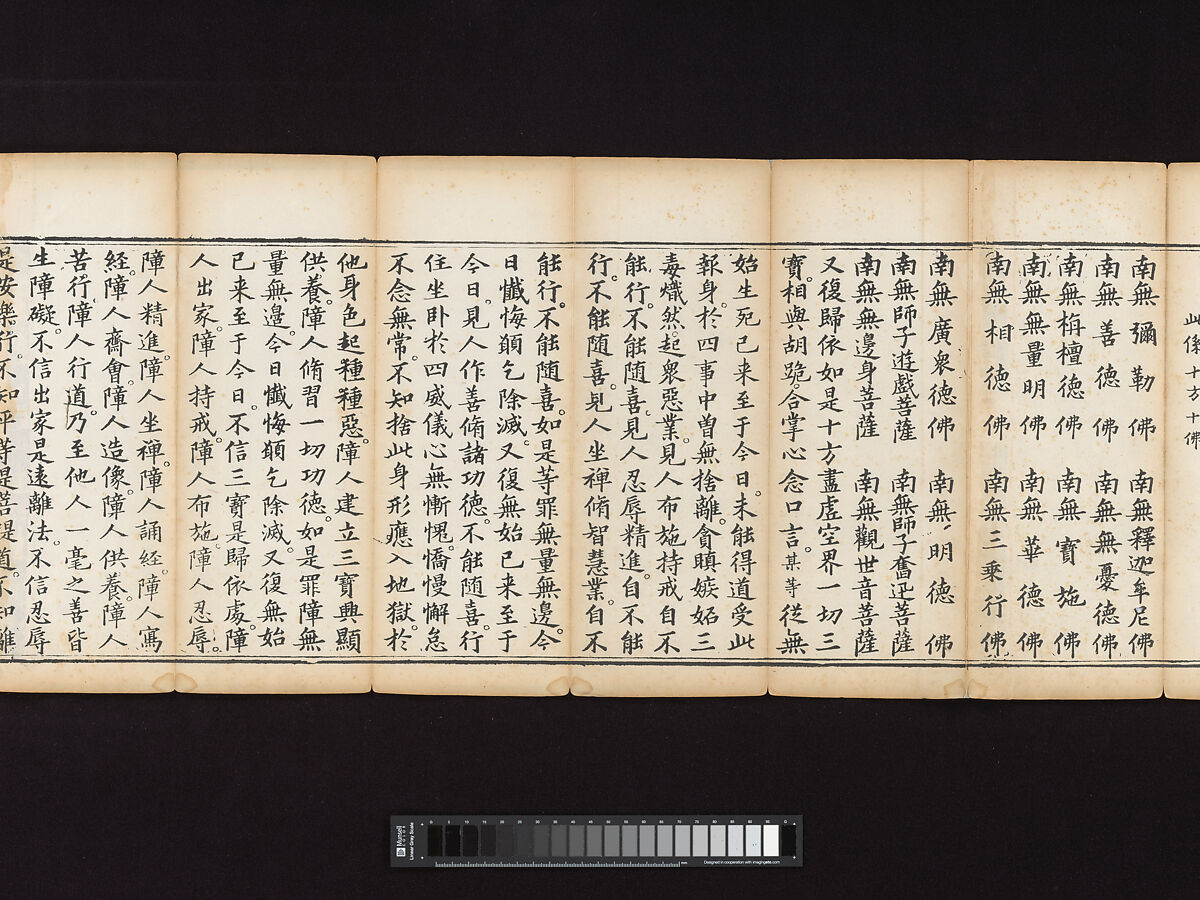 此係十方十佛
南無彌勒佛 南無釋迦牟尼佛
南無善德佛 南無無憂德佛
南無栴檀德佛 南無寶施佛
南無無量明佛 南無華德佛
南無相德佛 南無三乘行佛
南無廣衆德佛 南無明德佛
南無師子遊戲菩薩 南無師子奮迅菩薩
南無無邊身菩薩 南無觀世音菩薩
又復歸依如是十方盡虛空界一切三
寶。相與胡跪合掌心念口言。某等從無
始生死已来至于今日。未能得道受此
報身。於四事中曽無捨離。貪瞋嫉妬三
毒熾然。起衆惡業。見人布施持戒自不
能行。不能随喜。見人忍辱精進。自不能
行。不能随喜。見人坐禪脩智慧業。自不
能行。不能随喜。如是等罪無量無邊。今
日懺悔願乞除滅。又復無始已来至于
今日。見人作善脩諸功德。不能随喜。行
住坐卧於四威儀心無慚愧。憍慢懈怠
不念無常。不知捨此身形應入地獄。於
他身色起種種惡。障人建立三寶興顯
供養。障人脩習一切功德。如是罪障無
量無邊。今日懺悔願乞除滅。又復無始
已来至于今日。不信三寶是歸依處。障
人出家。障人持戒。障人布施。障人忍辱。
障人精進。障人坐禪。障人誦經。障人寫
經。障人齋會。障人造像。障人供養。障人
苦行。障人行道。乃至他人一毫之善皆
生障礙。不信出家是遠離法。不信忍辱
是安樂行。不知平等是菩提道。不知離
Munsell
COLOR
Linear Gray Scale
mm
Designed in cooperation with imagingetc.com